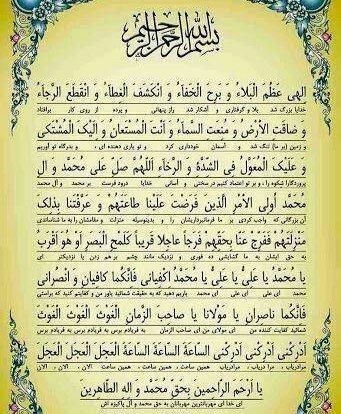 بسم الله الرحمن الرحیم
اِلهِی عَظُمَ الْبَلاَءُ وَ بَرِحَ الْخَفَاءُ وَ انْکَشَفَ الْغِطَاءُ وَ انْقَطَعَ الرَّجَاءُ
خدایا بزرگ شد بلا و گرفتاری و آشکار شد راز پنهانی و پرده از روی کار برافتاد
وَ ضَاقَتِ الْاَرْضُ وَ مُنِعَتِ السَّمَاءُ وَ اَنْتَ الْمُسْتَعَانُ وَ اِلَیْکَ الْمُشْتَکَی
زمین (بر ما) تنگ شد و آسمان خودداری کرد و تو یاری دهنده ای ، و بدرگاه تو آوریم
وَ عَلَیْکَ الْمُعَوَّلُ فِی الشِّدَّةِ وَ الرَّخَاءِ اَللّهُمَّ صَلِّ عَلَی مُحَمَّدٍ وَ آلِ
پروردگارا شکوه را ، و بر تو اعتماد کنیم در سختی و آسانی خدایا درود فرست بر محمد و آل محمد
مُحَمَّدٍ اُولِی الْاَمْرِ الَّذِینَ فَرَضْتَ عَلَیْنَا طَاعَتَهُمْ وَ عَرَّفْتَنَا بِذلِکَ
آن بزرگانی که واجب کردی بر ما فرمانبرداریشان را و بدینوسیله منزلت و مقامشان را به ما شناساندی
مَنْزِلَتَهُمْ فَفَرِّجْ عَنَّا بِحَقِّهِمْ فَرَجاً عَاجِلاً قَرِیباً کَلَمْحِ الْبَصَرِ اَوْ هُوَ اَقْرَبُ
به حق ایشان به ما گشایشی ده فوری و نزدیک مانند چشم بر هم زدن یا نزدیکتر از آن
یَا مُحَمَّدُ یَا عَلِیُّ یَا عَلِیُّ یَا مُحَمَّدُ اِکْفِیَانِی فَاِنَّکُمَا کَافِیَانِ وَ انْصُرَانِی
ای محمد ای علی ای علی ای محمد
فَاِنَّکُمَا نَاصِرَانِ یَا مَوْلَانَا یَا صَاحِبَ الزَّمَانِ الْغَوْثَ الْغَوْثَ الْغَوْثَ
ای مولای من ای صاحب الزمان به فریادم برس به فریادم برس به فریادم برس
اَدْرِکْنِی اَدْرِکْنِی اَدْرِکْنِی السَّاعَةَ السَّاعَةَ السَّاعَةَ الْعَجَلَ الْعَجَلَ الْعَجَلَ
مرا دریاب ، مرا دریاب ، مرا دریاب همین ساعت ، همین ساعت ، همین ساعت ، الان ، الان ، الان
یَا اَرْحَمَ الرَّاحِمِینَ بِحَقِّ مُحَمَّدٍ وَ آلِهِ الطَّاهِرِینَ
ای خدا ای مهربانترین مهربانان به حق محمد و آل پاکیزه اش